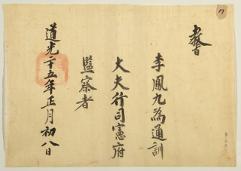 教旨
李鳳九為通訓
大夫行司憲府
監察者
道光二十五年正月初八日